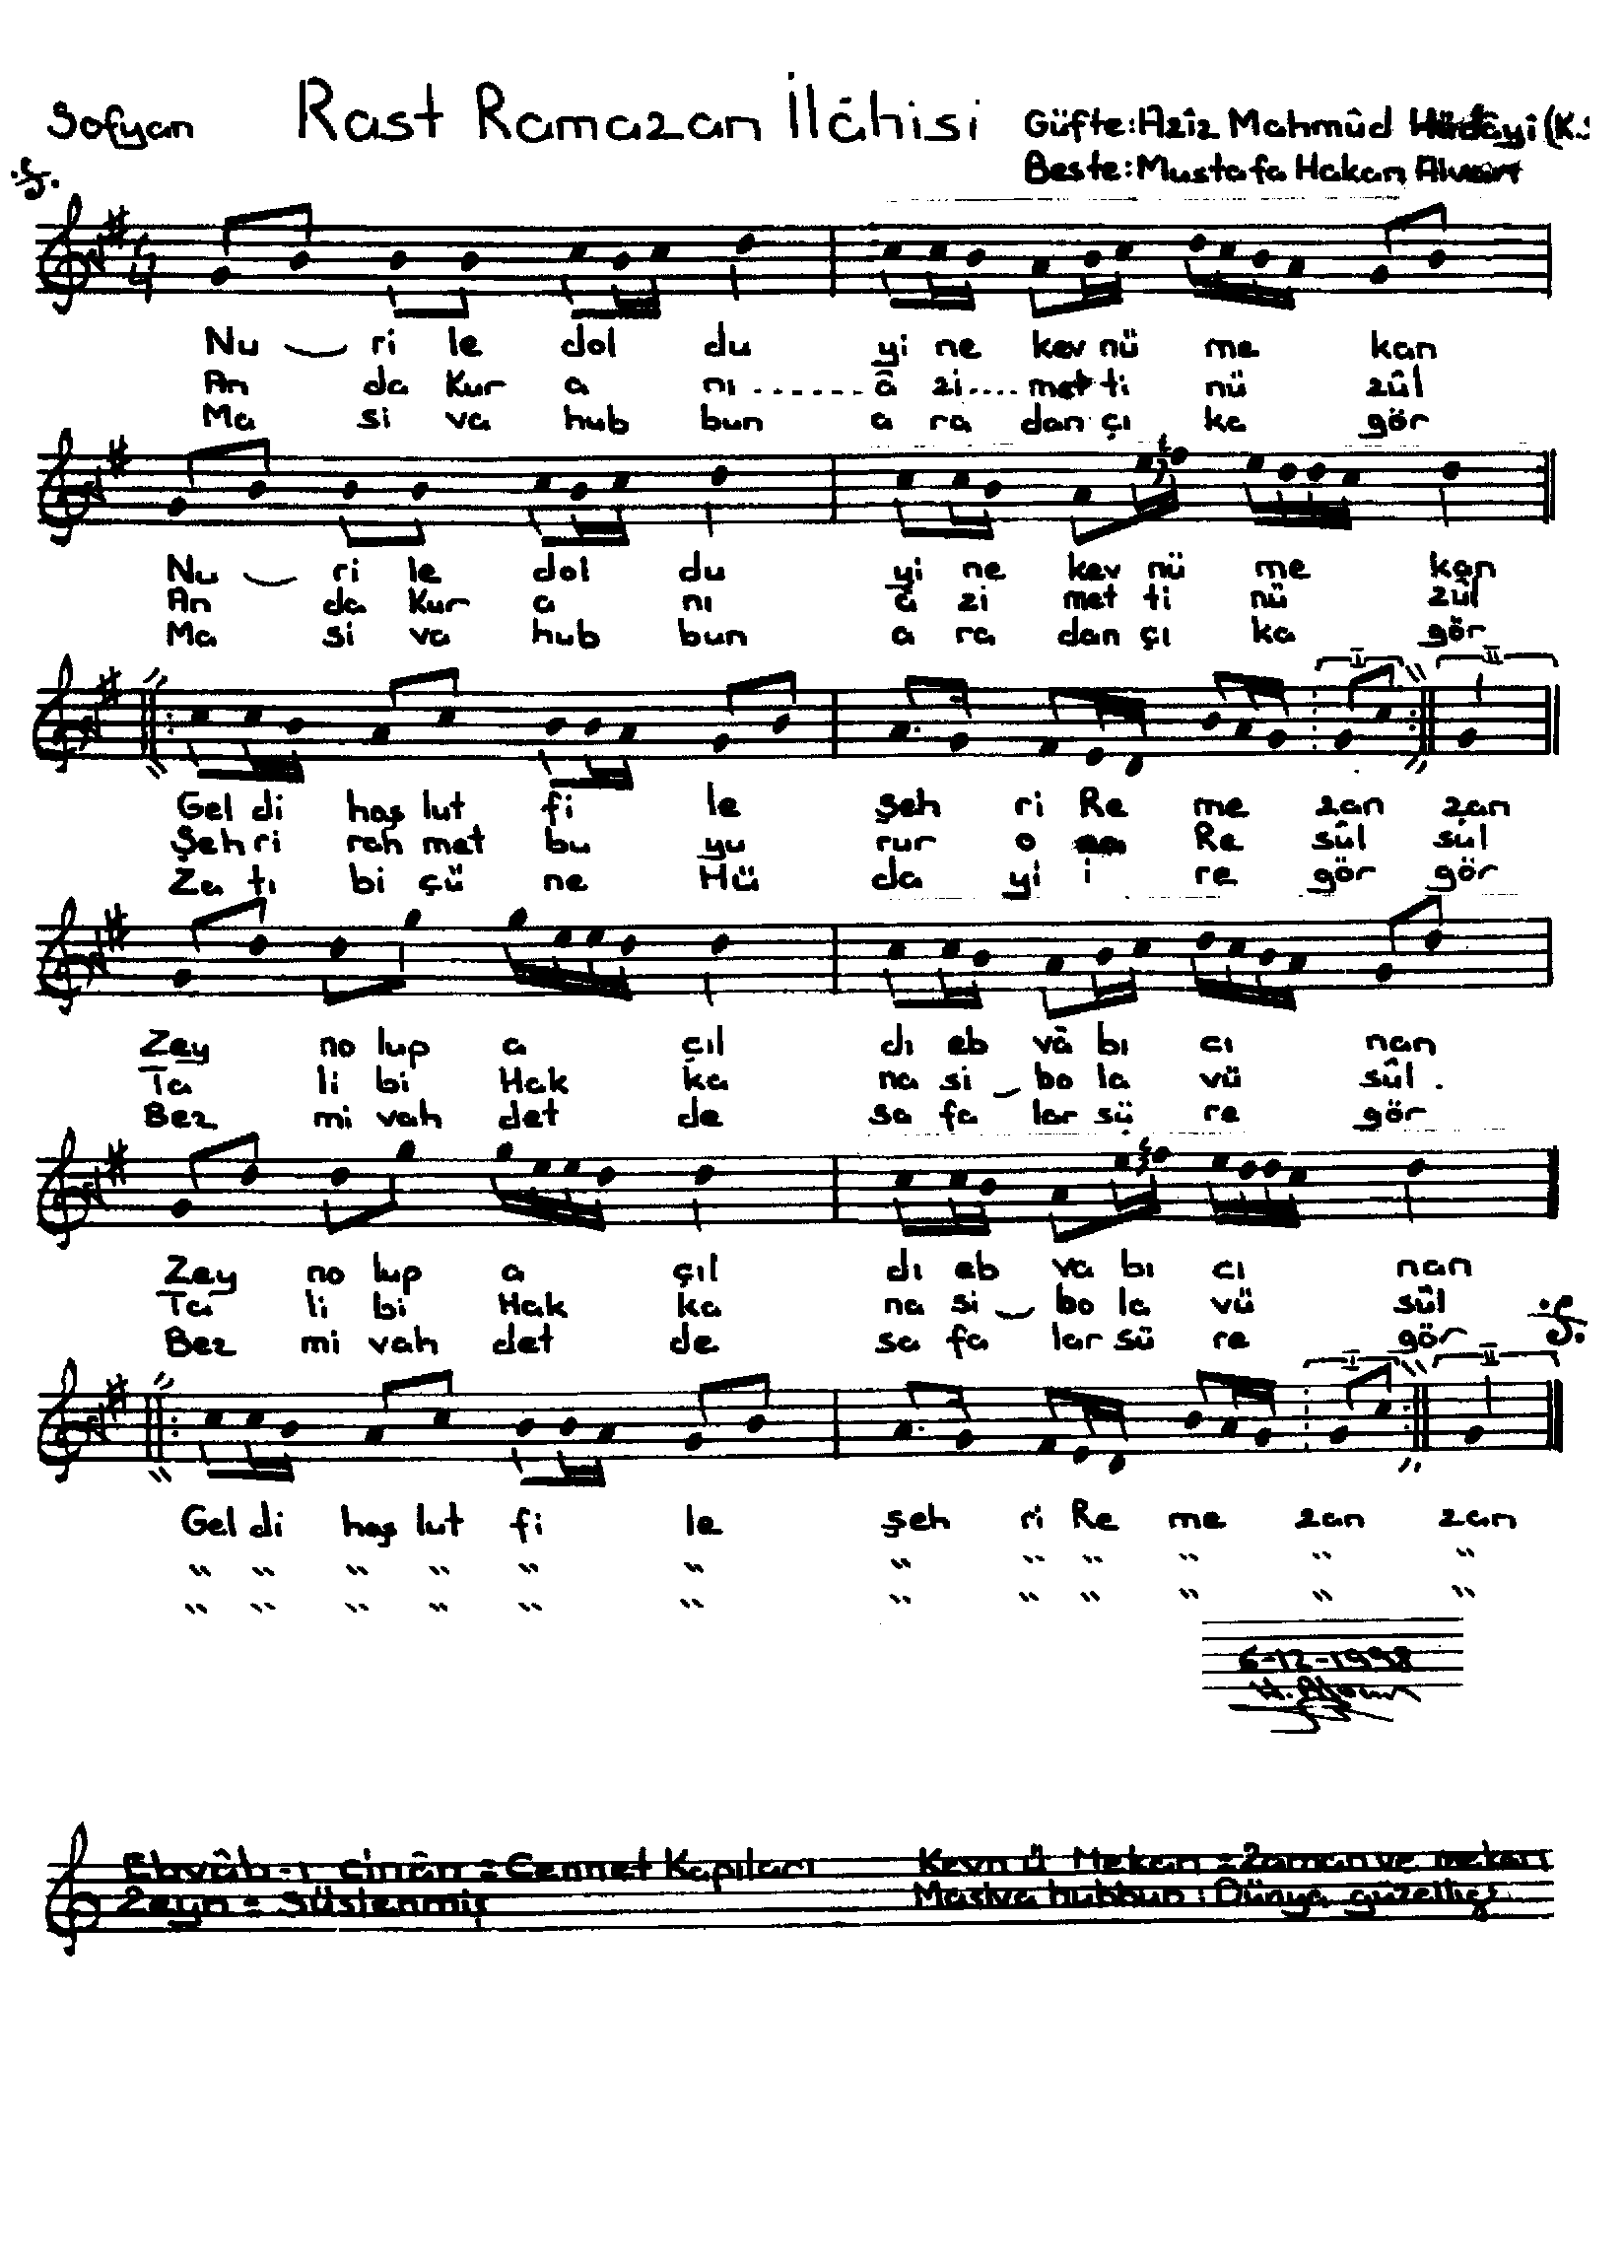 Sofyan Rast Ramazan İlâhisi Güfte: Azîz Mahmûd Hüdâyi (K.S
Beste: Mustafa Hakan Alvan
4
4
Nu ri le dol du yi ne kev nü me kan
An da Kur a nı - - - - - - - â zi .... met ti nü zûl
Ma si va hub bun a ra dan çı ka gör
Nu ri le dol du yi ne kev nü me kan
An da Kur a nı â zi met ti nü zûl
Ma si va hub bun a ra dan çı ka gör
I II
Gel di hoş lut fi le şeh ri Re me zan zan
Şeh ri rah met bu yu rur o Re sûl sûl
Za tı bi çü ne Hü da yi i re gör gör
Zey no lup a çıl dı eb vâ bı cı nan
Ta li bi Hak ka na si bo la vü sûl .
Bez mi vah det de sa fa lar sü re gör
Zey no lup a çıl dı eb va bı cı nan
Ta li bi Hak ka na si bo la vü sûl
Bez mi vah det de sa fa lar sü re gör
I II
Gel di hoş lut fi le şeh ri Re me zan zan
" " " " " " " " " " " "
" " " " " " " " " " " "
6-12-1998
Ebvâb-ı cinân = Cennet Kapıları Kevn ü Mekan = Zaman ve mekan
Zeyn = Süslenmiş Masiva hubbun : Dünya güzelliği